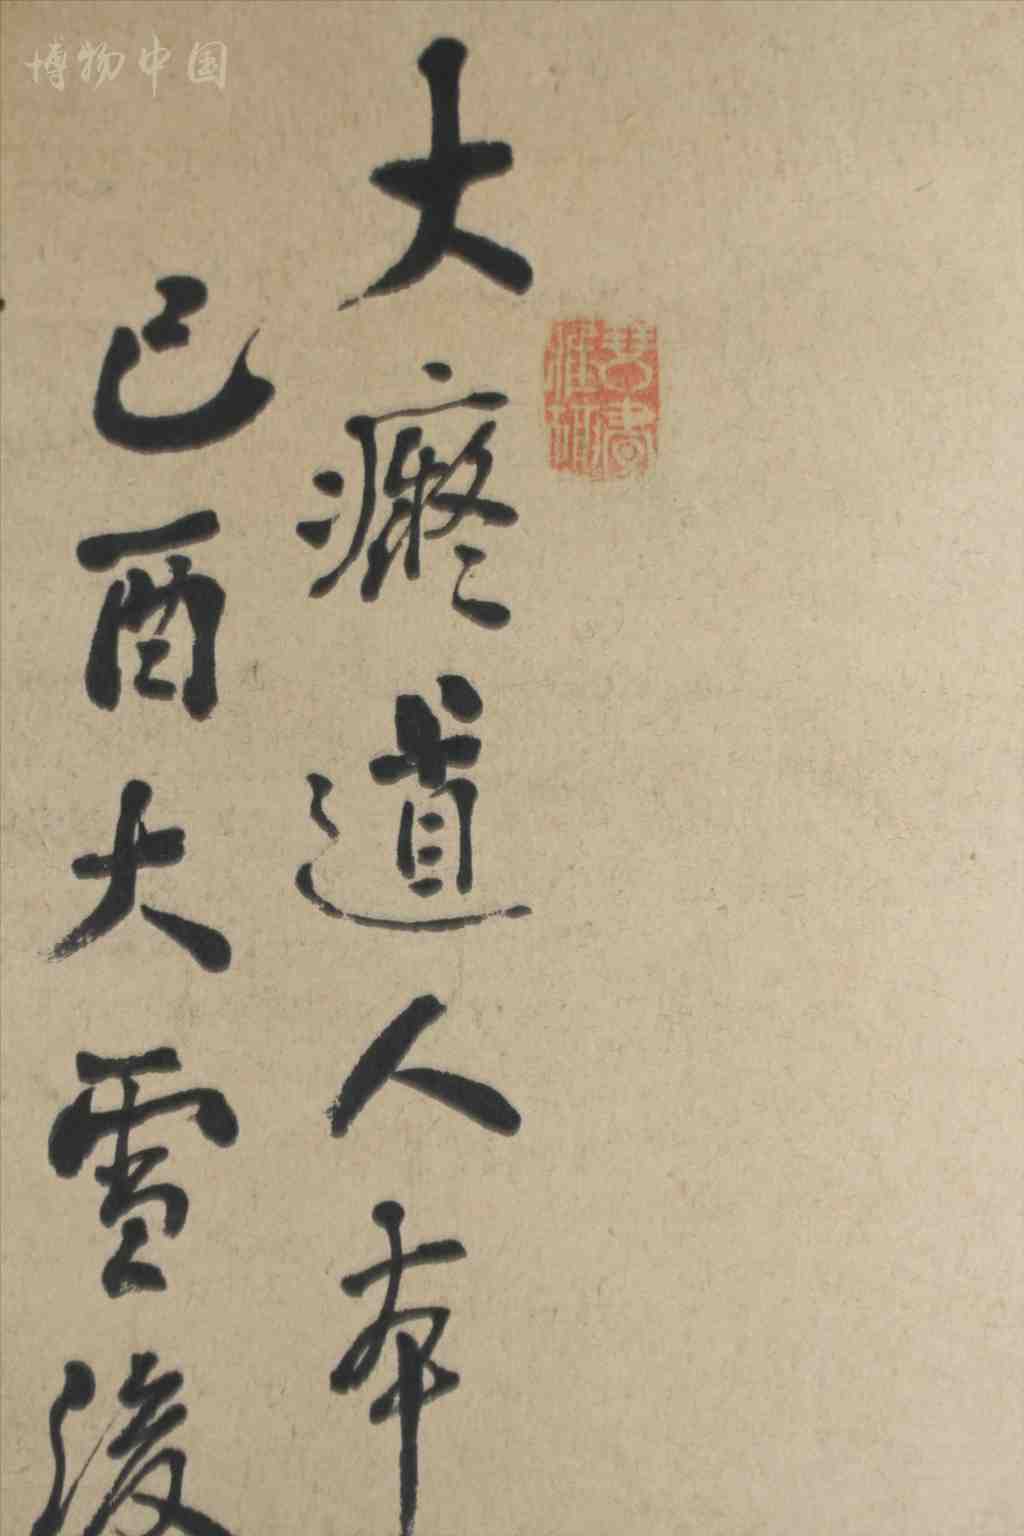 博物中国
大癡道人本
己酉大雪後